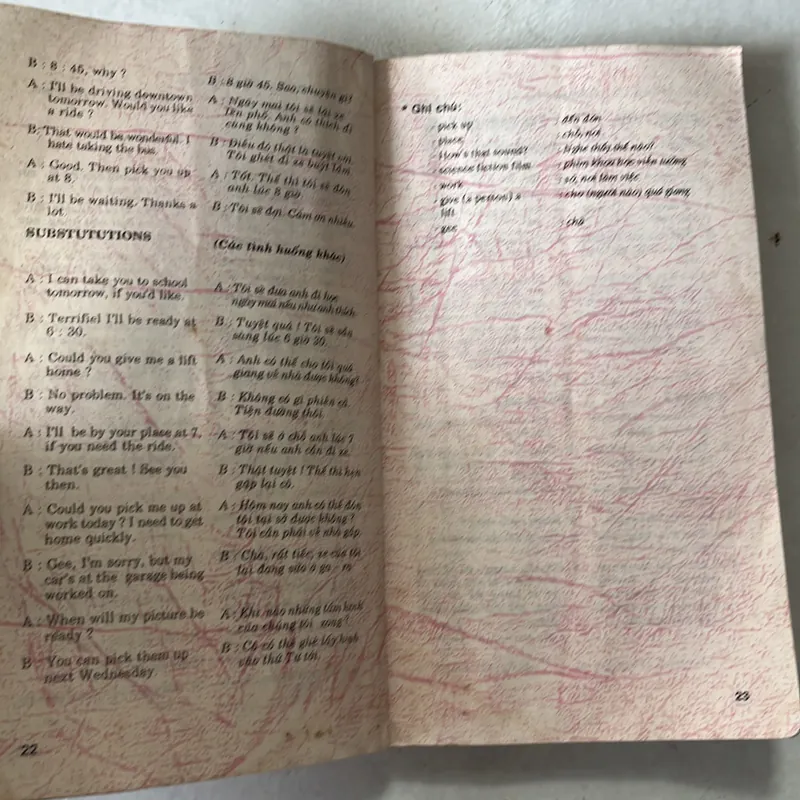 B : 8 : 45, why ?
A : I'll be driving downtown
tomorrow. Would you like
a ride ?
B: That would be wonderful. I
hate taking the bus.
A : Good. Then pick you up
at 8.
B : I'll be waiting. Thanks a
lot.
SUBSTUTUTIONS
A : I can take you to school
tomorrow, if you'd like.
B : Terrifiel I'll be ready at
6 : 30.
A : Could you give me a lift
home ?
B : No problem. It's on the
way.
A : I'll be by your place at 7,
if you need the ride.
B : That's great ! See you
then.
A : Could you pick me up at
work today ? I need to get
home quickly.
B : Gee, I'm sorry, but my
car's at the garage being
worked on.
A : When will my picture be
ready ?
B : You can pick them up
next Wednesday.
B : 8 giờ 45. Sao, chuyện gì?
A : Ngày mai tôi sẽ lái xe
lên phố. Anh có thích đi
cùng không ?
B : Điều đó thật là tuyệt vời.
Tôi ghét đi xe buýt lắm.
A : Tốt. Thế thì tôi sẽ đón
anh lúc 8 giờ.
B : Tôi sẽ đợi. Cám ơn nhiều.
(Các tình huống khác)
A : Tôi sẽ đưa anh đi học
ngày mai nếu như anh thích.
B : Tuyệt quá ! Tôi sẽ sẵn
sàng lúc 6 giờ 30.
A : Anh có thể cho tôi quá
giang về nhà được không?
B : Không có gì phiền cả.
Tiện đường thôi.
A : Tôi sẽ ở chỗ anh lúc 7
giờ nếu anh cần đi xe.
B : Thật tuyệt ! Thế thì hẹn
gặp lại cô.
A : Hôm nay anh có thể đón
tôi tại sở được không ?
Tôi cần phải về nhà gấp.
B : Chà, rất tiếc, xe của tôi
lại đang sửa ở ga - ra
A : Khi nào những tấm hình
của chúng tôi xong ?
B : Cô có thể ghé lấy hình
vào thứ Tư tới.
22
* Ghi chú:
- pick up : đến đón
- place : chỗ, nơi
- How's that sound? : Nghe thấy thế nào?
- science fiction film : phim khoa học viễn tưởng
- work : sở, nơi làm việc
- give (a person) a : cho (người nào) quá giang
lift
- gee : chà
23